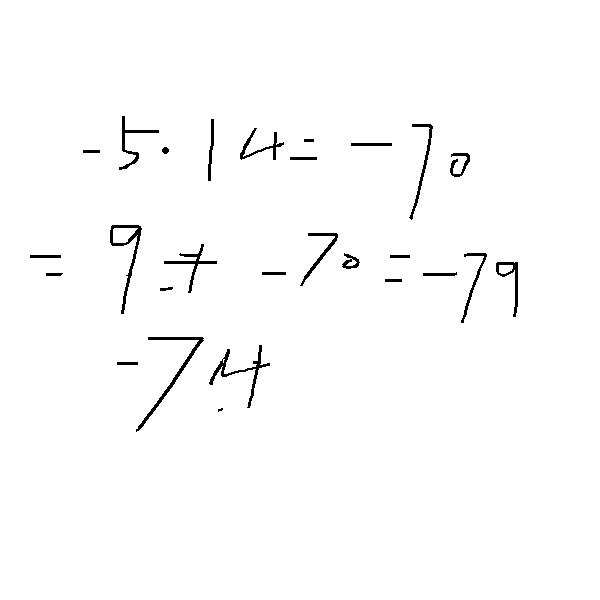 -5·14=-70
=9+-70=-79
-74